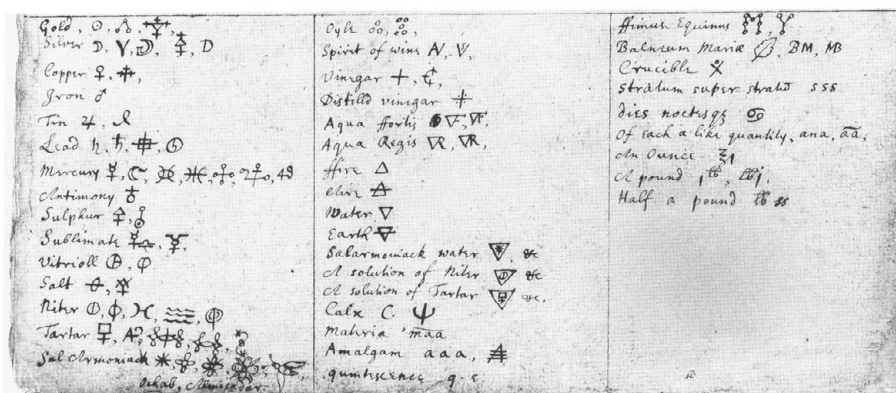 Gold, ☉,
Silver ☽, D
Copper ♀,
Iron ♂
Tin ♃,
Lead ♄,
Mercury ☿,
Antimony ♁
Sulphur 🜍,
Sublimate
Vitrioll
Salt
Niter
Tartar
Sal Armoniack
Oyle
Spirit of wine
Vinegar
Distilld vinegar
Aqua ffortis
Aqua Regis
ffire △
Aire 🜁
Water ▽
Earth 🜃
Salarmoniack water &c
A solution of Niter &c
A solution of Tartar &c.
Calx C. Ψ
Materia maa
Amalgam aaa,
quintescence q. e.
ffimus Equinus
Balneum Mariæ , BM, MB
Crucible
Stratum super stratū sss
dies noctesqꝫ
Of each a like quantity, ana, āā,
An Ounce ℥1
A pound
Half a pound ss